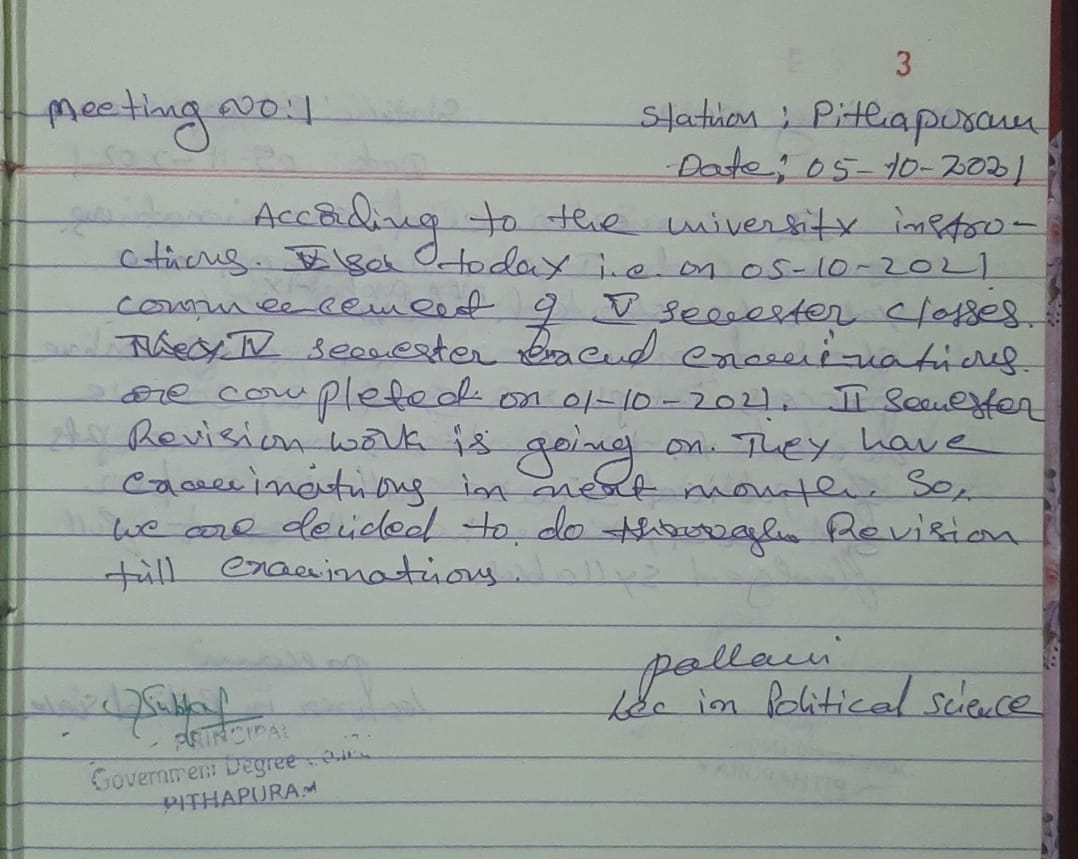 3
Meeting No:1
Station : Pithapuram
Date : 05-10-2021
According to the university instro-
ctions. today i.e. on 05-10-2021
commencement of V semester classes.
IV semester end examinations.
are completed on 01-10-2021. II Semester
Revision work is going on. They have
Examinations in next month. So,
we are decided to do thorough Revision
till examinations.
pallavi
Lec in Political Science
PRINCIPAL
Government Degree
PITHAPURAM